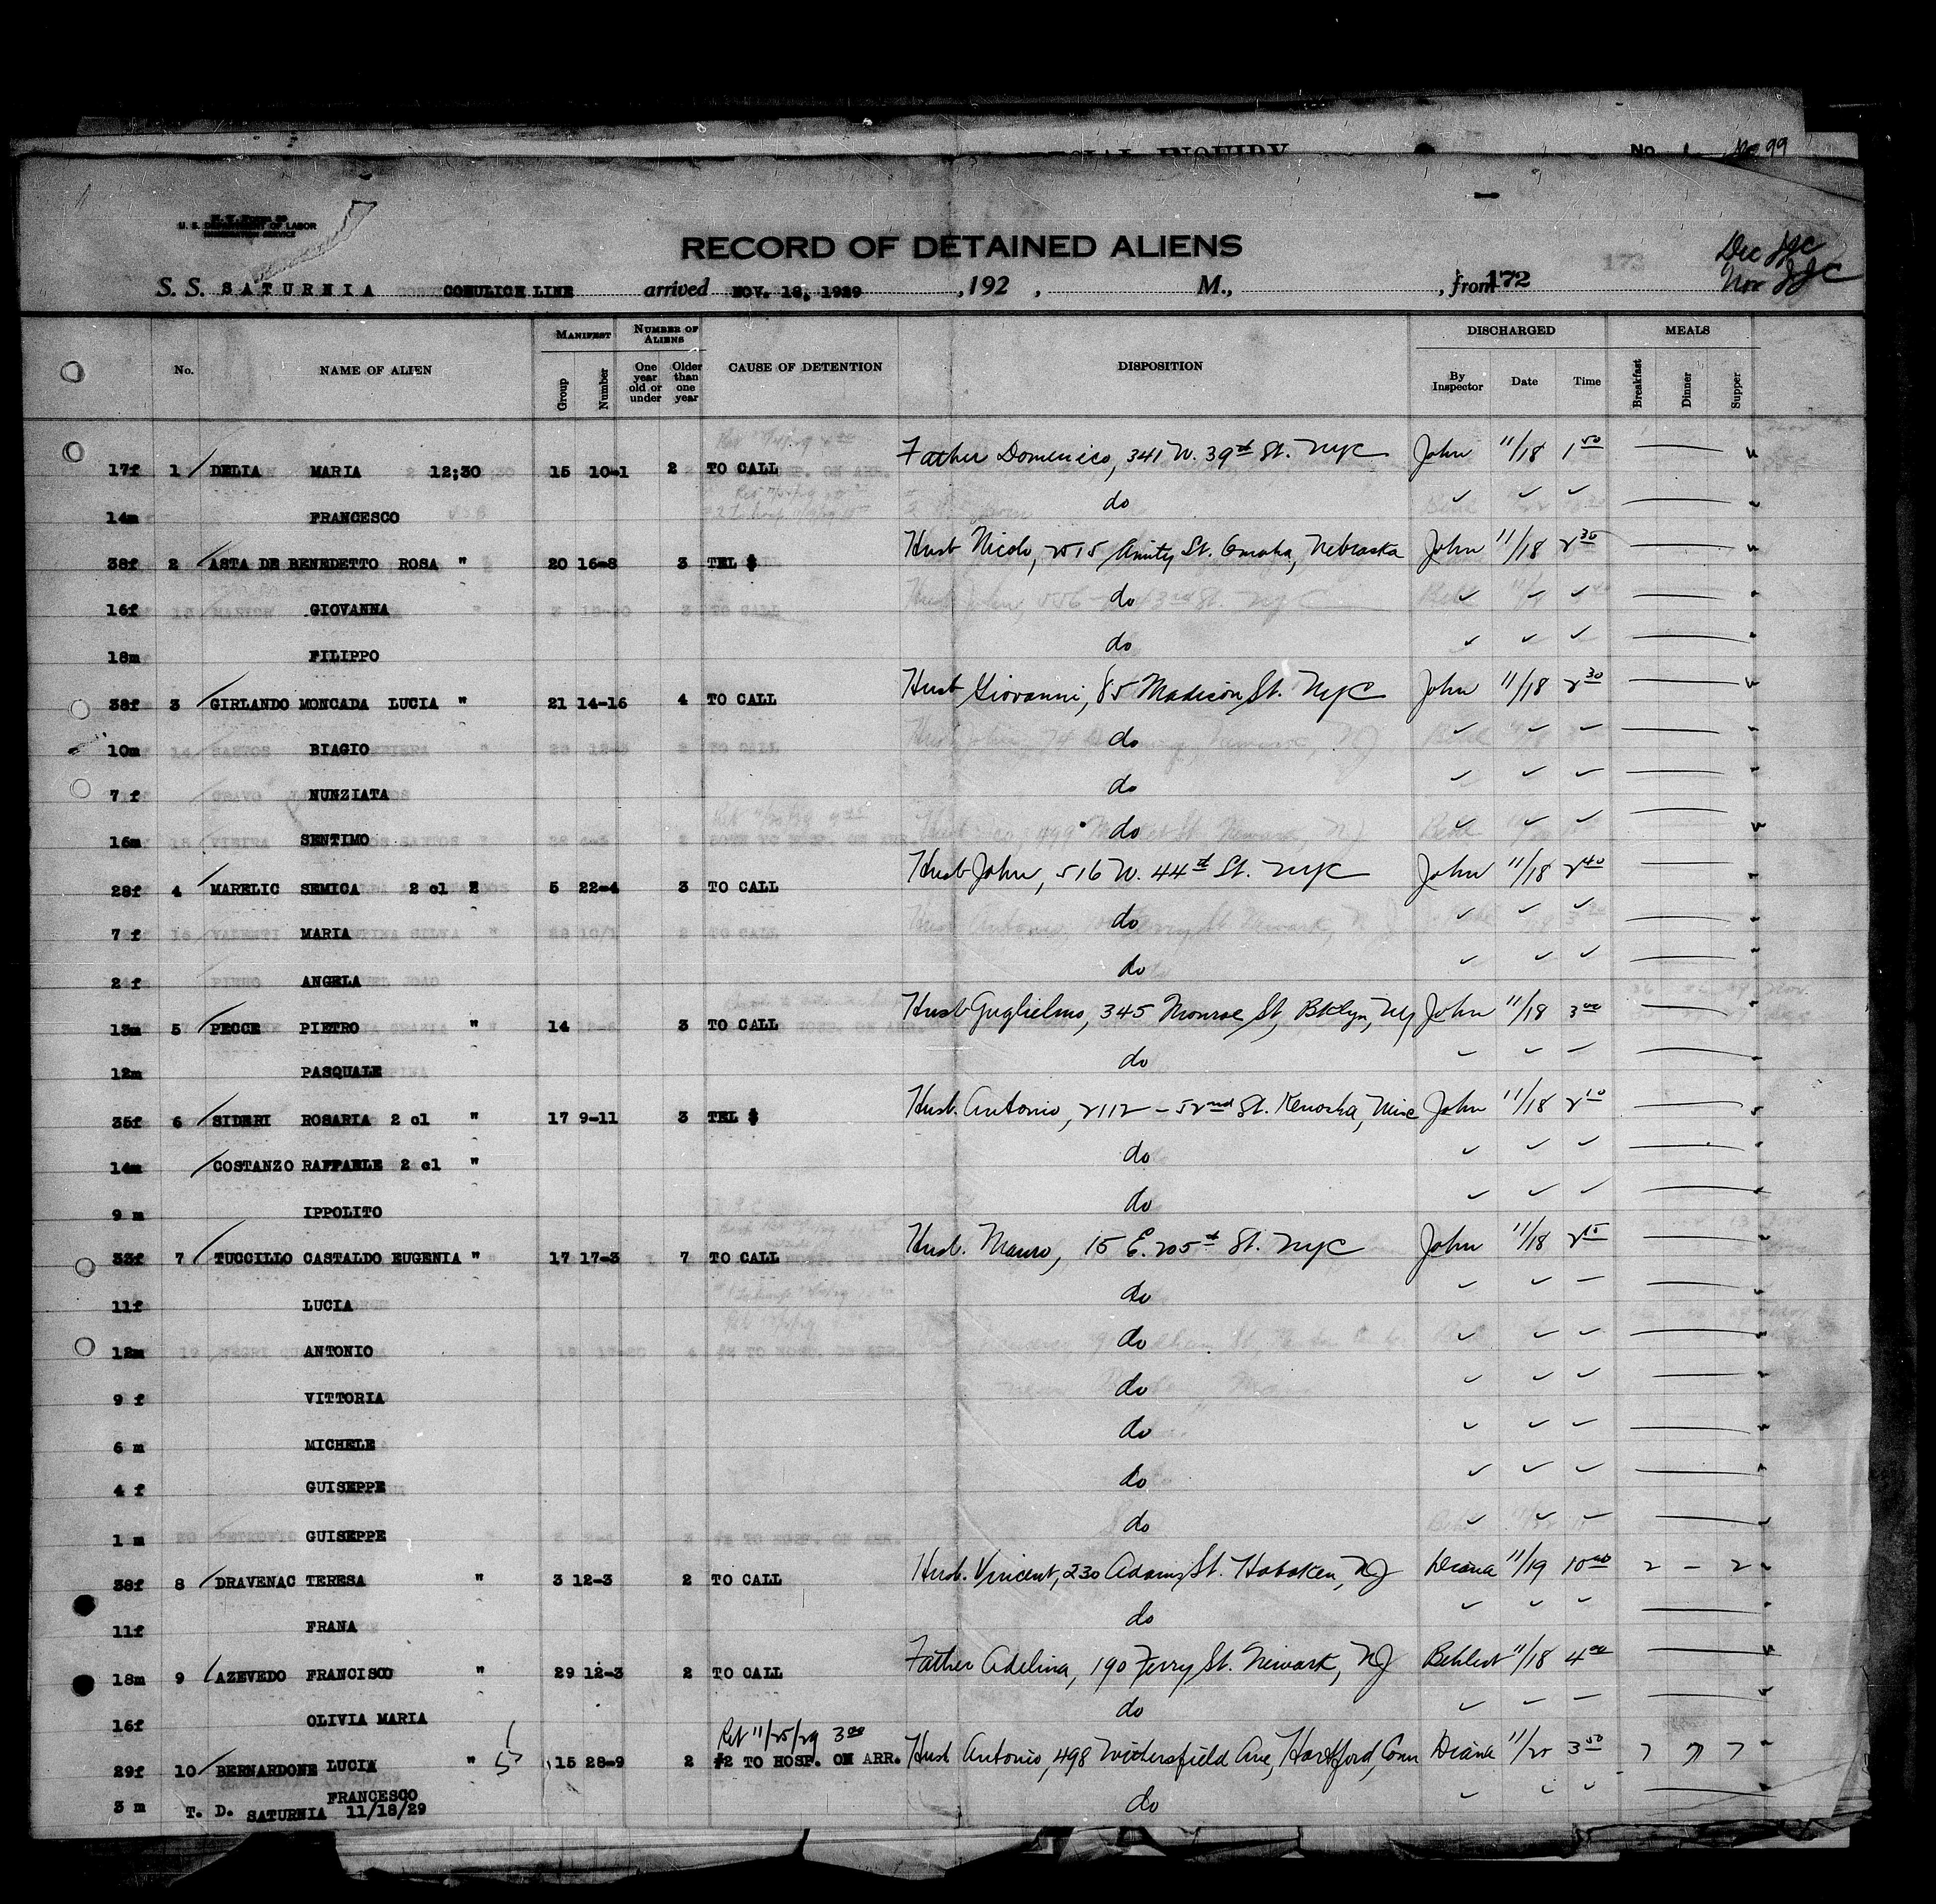 SPECIAL INQUIRY No. 1 99
U. S. DEPARTMENT OF LABOR
IMMIGRATION SERVICE
RECORD OF DETAINED ALIENS
Dec JJC
Nov JJC
173
S. S. SATURNIA COSULICH LINE arrived NOV. 18, 1929 , 192 , M., , from 172
MANIFEST NUMBER OF ALIENS DISCHARGED MEALS
No. NAME OF ALIEN Group Number One year old or under Older than one year CAUSE OF DETENTION DISPOSITION By Inspector Date Time Breakfast Dinner Supper
17f 1 DELIA MARIA 12;30 15 10-1 2 TO CALL Father Domenico, 341 W. 39th St. NYC John 11/18 1 50
14m FRANCESCO do ✓ ✓ ✓
38f 2 ASTA DE BENEDETTO ROSA " 20 16-8 3 TEL $ Husb Nicolo, 2515 Amity St. Omaha, Nebraska John 11/18 2 30
16f GIOVANNA do ✓ ✓ ✓
18m FILIPPO do ✓ ✓ ✓
38f 3 GIRLANDO MONCADA LUCIA " 21 14-16 4 TO CALL Husb Giovanni, 85 Madison St. NYC John 11/18 2 30
10m BIAGIO do ✓ ✓ ✓
7 f NUNZIATA do ✓ ✓ ✓
16m SENTIMO do ✓ ✓ ✓
28f 4 MARELIC SEMICA 2 cl " 5 22-4 3 TO CALL Husb John, 516 W. 44th St. NYC John 11/18 2 40
7 f MARIA do ✓ ✓ ✓
2 f ANGELA do ✓ ✓ ✓
13m 5 PECCE PIETRO " 14 3 TO CALL Husb Guglielmo, 345 Monroe St, Bklyn, NY John 11/18 3 00
12m PASQUALE do ✓ ✓ ✓
35f 6 SIDERI ROSARIA 2 cl " 17 9-11 3 TEL $ Husb. Antonio, 2112 - 52nd St. Kenosha, Wisc John 11/18 2 10
14m COSTANZO RAFFAELE 2 cl " do ✓ ✓ ✓
9 m IPPOLITO do ✓ ✓ ✓
33f 7 TUCCILLO CASTALDO EUGENIA " 17 17-3 7 TO CALL Husb. Mauro, 15 E. 205th St. NYC John 11/18
11f LUCIA do ✓ ✓ ✓
12m ANTONIO do ✓ ✓ ✓
9 f VITTORIA do ✓ ✓ ✓
6 m MICHELE do ✓ ✓ ✓
4 f GUISEPPE do ✓ ✓ ✓
1 m GUISEPPE do ✓ ✓ ✓
38f 8 DRAVENAC TERESA " 3 12-3 2 TO CALL Husb. Vincent, 230 Adams St. Hoboken, NJ Deana 11/19 10 00 2 - 2
11f FRANA do ✓ ✓ ✓
18m 9 AZEVEDO FRANCISCO " 29 12-3 2 TO CALL Father Adelina, 190 Ferry St. Newark, NJ 11/18 4 00
16f OLIVIA MARIA do ✓ ✓ ✓
Ret 11/25/29 3 00
29f 10 BERNARDONE LUCIA " 15 28-9 2 #2 TO HOSP. ON ARR. Husb Antonio, 498 Wethersfield Ave, Hartford, Conn Deana 11/25 3 50 7 7 7
3 m FRANCESCO do ✓ ✓
T. D. SATURNIA 11/18/29